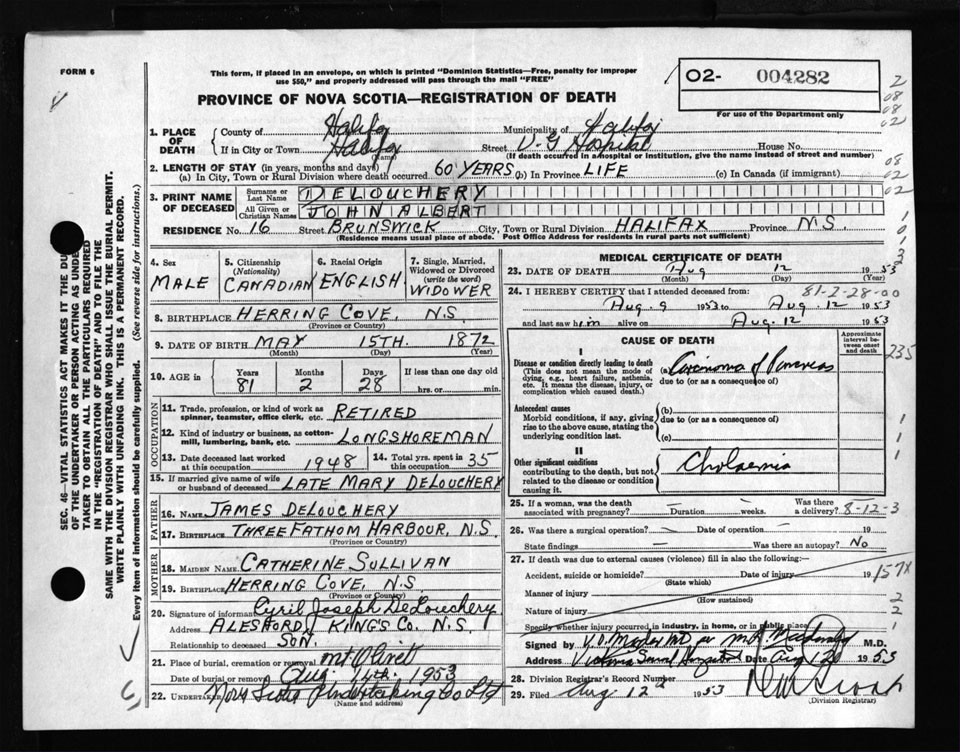 FORM 6
This form, if placed in an envelope, on which is printed "Dominion Statistics—Free, penalty for improper
use $50," and properly addressed will pass through the mail "FREE"
O2- 004282
For use of the Department only
PROVINCE OF NOVA SCOTIA—REGISTRATION OF DEATH
1. PLACE OF DEATH
County of Halifax Municipality of Halifax
If in City or Town Halifax (Name) Street V-G Hospital House No.
(If death occurred in a hospital or institution, give the name instead of street and number)
2. LENGTH OF STAY (in years, months and days)
(a) In City, Town or Rural Division where death occurred 60 YEARS (b) In Province LIFE (c) In Canada (if immigrant)
3. PRINT NAME OF DECEASED
Surname or Last Name DELOUCHERY
All Given or Christian Names JOHN ALBERT
RESIDENCE No. 16 Street BRUNSWICK City, Town or Rural Division HALIFAX Province N.S.
(Residence means usual place of abode. Post Office Address for residents in rural parts not sufficient)
4. Sex MALE
5. Citizenship (Nationality) CANADIAN
6. Racial Origin ENGLISH
7. Single, Married, Widowed or Divorced (write the word) WIDOWER
8. BIRTHPLACE HERRING COVE, N.S.
(Province or Country)
9. DATE OF BIRTH MAY 15TH. 1872
(Month) (Day) (Year)
10. AGE in Years 81 Months 2 Days 28 If less than one day old
hrs. or min.
OCCUPATION
11. Trade, profession, or kind of work as spinner, teamster, office clerk, etc. RETIRED
12. Kind of industry or business, as cotton-mill, lumbering, bank, etc. LONGSHOREMAN
13. Date deceased last worked at this occupation 1948 14. Total yrs. spent in this occupation 35
15. If married give name of wife or husband of deceased LATE MARY DELOUCHERY
FATHER
16. NAME JAMES DELOUCHERY
17. BIRTHPLACE THREE FATHOM HARBOUR, N.S.
(Province or Country)
MOTHER
18. MAIDEN NAME CATHERINE SULLIVAN
19. BIRTHPLACE HERRING COVE, N.S
(Province or Country)
20. Signature of informant Cyril Joseph DeLouchery
Address KING'S CO. N.S.
Relationship to deceased SON.
21. Place of burial, cremation or removal Mt Olivet
Aug. 14th. 1953
22. UNDERTAKER Nova Scotia Undertaking Co Ltd
(Name and address)
MEDICAL CERTIFICATE OF DEATH
23. DATE OF DEATH Aug 12 1953
(Month) (Day) (Year)
81-2-28-00
24. I HEREBY CERTIFY that I attended deceased from:
Aug. 9 1953 to Aug. 12 1953
and last saw him alive on Aug. 12 1953
CAUSE OF DEATH
Approximate interval between onset and death
I
Disease or condition directly leading to death
(This does not mean the mode of dying, e.g., heart failure, asthenia, etc. It means the disease, injury, or complication which caused death.)
(a) Carcinoma of Pancreas
due to (or as a consequence of)
235
Antecedent causes
Morbid conditions, if any, giving rise to the above cause, stating the underlying condition last.
(b)
due to (or as a consequence of)
(c)
II
Other significant conditions
contributing to the death, but not related to the disease or condition causing it.
Cholaemia
25. If a woman, was the death associated with pregnancy? Duration weeks. Was there a delivery?
8-12-3
26. Was there a surgical operation? — Date of operation — 19
State findings — Was there an autopsy? No
27. If death was due to external causes (violence) fill in also the following:
Accident, suicide or homicide? Date of injury 19
(State which)
157X
Manner of injury
(How sustained)
Nature of injury
Specify whether injury occurred in industry, in home, or in public place
Signed by M.D.
Address Victoria General Hospital Date Aug 12 1953
28. Division Registrar's Record Number
29. Filed Aug 12th 1953
(Division Registrar)
SEC. 46—VITAL STATISTICS ACT MAKES IT THE DU
OF THE UNDERTAKER OR PERSON ACTING AS UNDER
TAKER TO OBTAIN ALL THE PARTICULARS REQUIRED
IN THE "REGISTRATION OF DEATH" AND TO FILE THE
SAME WITH THE DIVISION REGISTRAR WHO SHALL ISSUE THE BURIAL PERMIT.
WRITE PLAINLY WITH UNFADING INK. THIS IS A PERMANENT RECORD.
Every item of information should be carefully supplied. (See reverse side for instructions.)